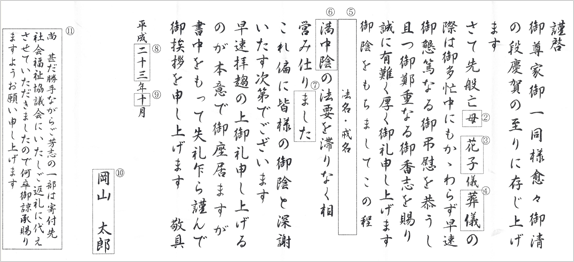 謹啓
御尊家御一同様愈々御清
の段慶賀の至りに存じ上げ
ます
さて先般亡②母③花子儀④葬儀の
際は御多忙中にもかゝわらず早速
御懇篤なる御弔慰を恭うし
且つ御鄭重なる御香志を賜り
誠に有難く厚く御礼申し上げます
御陰をもちましてこの程
⑤
法名・戒名
⑥満中陰の法要を滞りなく相
営み仕り⑦ました
これ偏に皆様の御陰と深謝
いたす次第でございます
早速拝趨の上御礼申し上げる
のが本意で御座居ますが
書中をもって失礼乍ら謹んで
御挨拶を申し上げます　敬具
平成⑧二十三年⑨十月
⑩岡山　太郎
⑪尚　甚だ勝手ながらご芳志の一部は寄付先
社会福祉協議会にいたしご返礼に代え
させていただきましたので何卒御諒承賜り
ますようお願い申し上げます